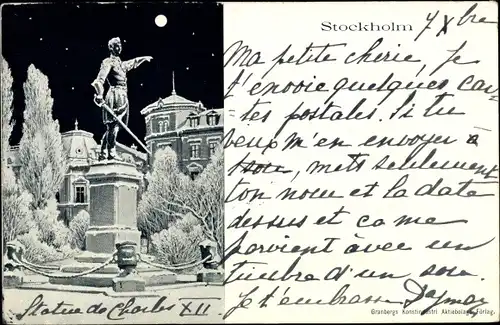 Stockholm
7 Xbre
Ma petite chérie, Je
t'envoie quelques car-
tes postales. Si tu
veux m'en envoyer à
mets seulement
ton nom et la date
dessus et ça me
parvient avec un
timbre d'un sou.
Je t'embrasse Dagmar
Statue de Charles XII
Granbergs Konstindustri Aktiebolags Förlag.